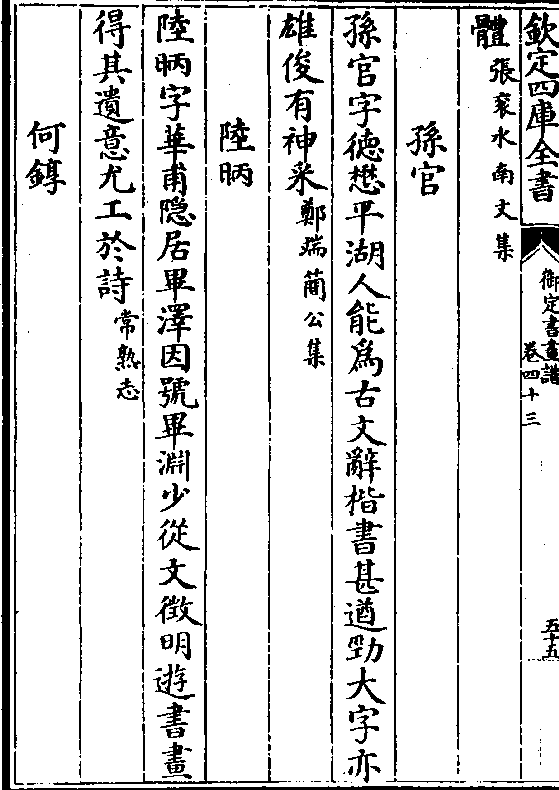 欽定四庫全書
御定書畫譜
卷四十三
五十五
體張袞水南文集
孫官
孫官字德懋平湖人能為古文辭楷書甚遒勁大字亦
雄俊有神采鄭端簡公集
陸昞
陸昞字華甫隐居畢澤因號畢淵少從文徴明遊書畫
得其遺意尤工於詩常熟志
何錞